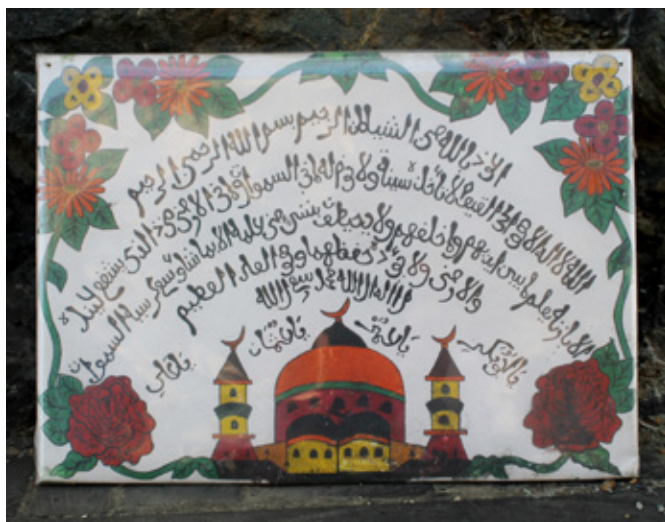 بالله من الشيطان الرجيم بسم الله الرحمن الرحيم
الله لا اله الا هو الحي القيوم لا تاخذه سنة ولا نوم له ما في السموات وما في الارض من ذا الذي يشفع عنده
الا باذنه يعلم ما بين ايديهم وما خلفهم ولا يحيطون بشئ من علمه الا بما شاء وسع كرسيه السموات
والارض ولا يؤده حفظهما وهو العلي العظيم
لا اله الا الله محمد رسول الله
يا ابوبكر يا عمر يا عثمان يا علي